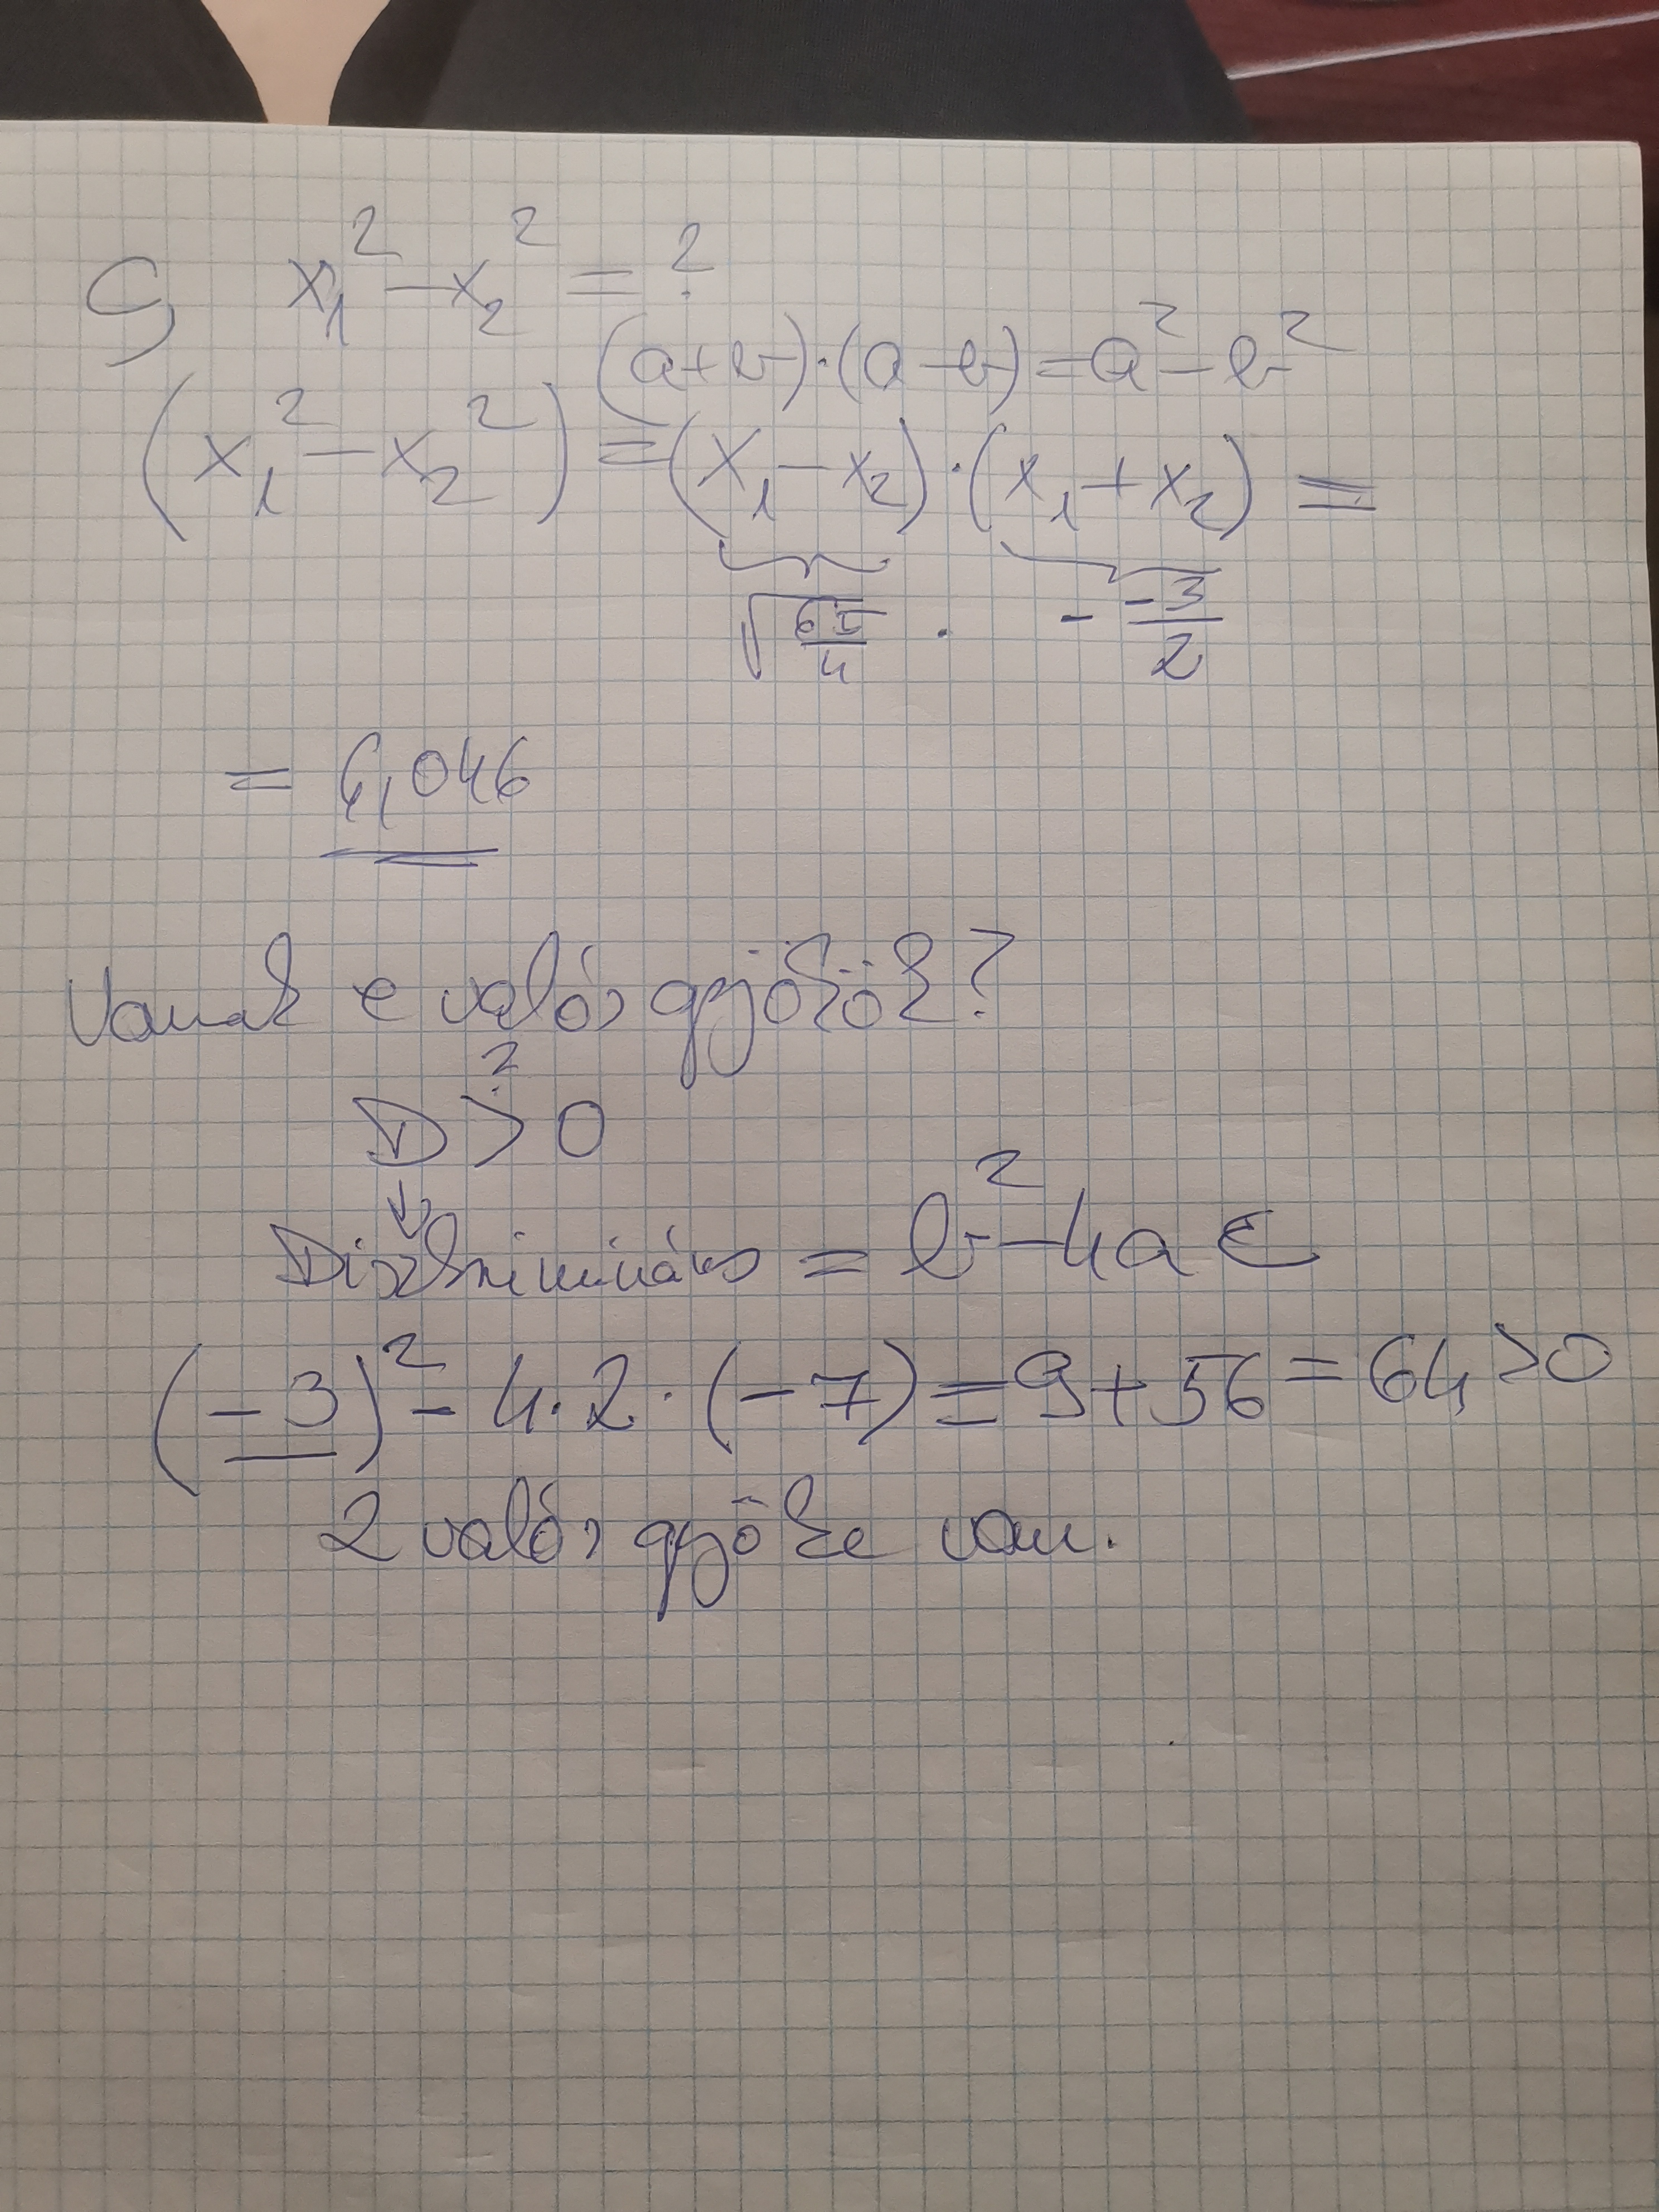 G x₁² - x₂² = ?
(a+b)·(a-b) = a² - b²
(x₁² - x₂²) = (x₁ - x₂)·(x₁ + x₂) =
√(65/4) · - -3/2
= 6,046
Vannak e valós gyökök?
?
D > 0
↓
Diszkrimináns = b² - 4ac
(-3)² - 4·2·(-7) = 9 + 56 = 64 > 0
2 valós gyöke van.